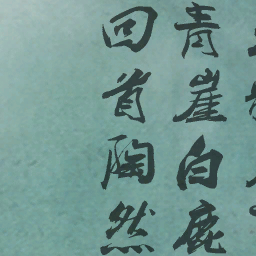 青崖白鹿
回首陶然